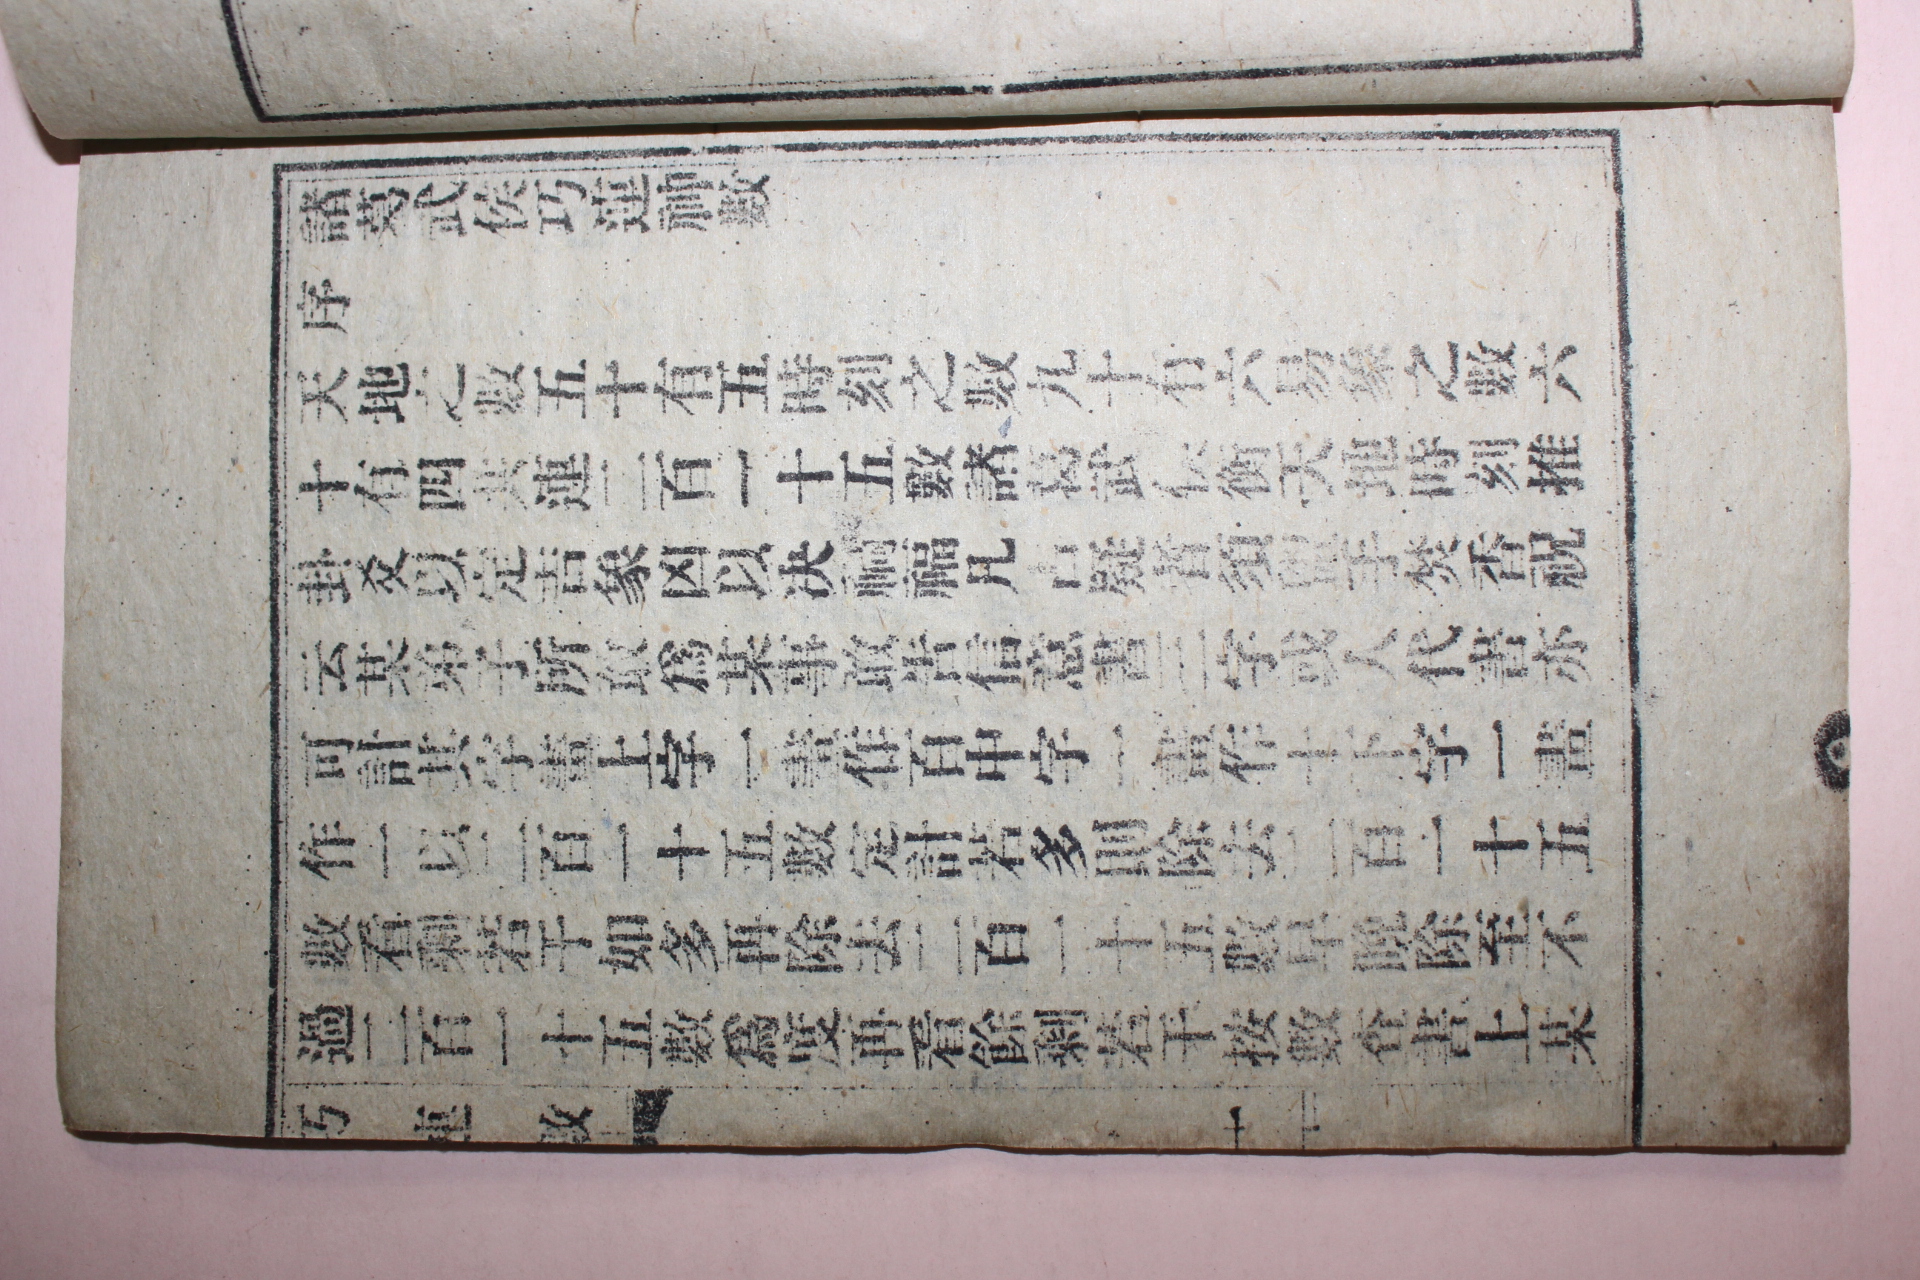 諸葛武侯巧連神數
序
天地之數五十有五時刻之數九十有六易卦之數六
十有四共連二百一十五數諸葛武侯衍天地時刻推
卦爻以定吉象凶以決禍福凡占疑者須手焚香祝
云某弟子所爲某事告信意書三字或人代書亦
可計其字畫上字一畫作百中字一畫作十下字一畫
作一以二百一十五數定計若多則除去二百一十五
數看剩若干如多再除去二百一十五數早晚除至不
過二百一十五數爲度再看餘剩若干按數在書上某
巧連數